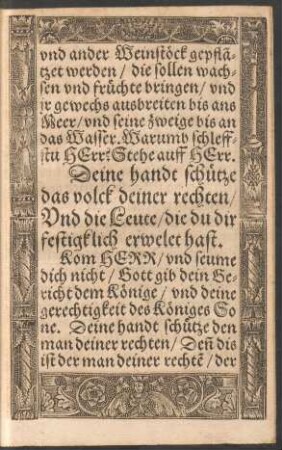 vnd ander Weinstöck gepflā-
tzet werden / die sollen wach-
sen vnd früchte bringen / vnd
jr gewechs ausbreiten bis ans
Meer / vnd seine zweige bis an
das Wasser. Warumb schleff-
stu HErr? Stehe auff HErr.
Deine handt schütze
das volck deiner rechten /
Vnd die Leute / die du dir
festigklich erwelet hast.
Kom HERR / vnd seume
dich nicht / Gott gib dein Ge-
richt dem Könige / vnd deine
gerechtigkeit des Königes So
ne. Deine handt schütze den
man deiner rechten / Deñ dis
ist der man deiner rechtē / der